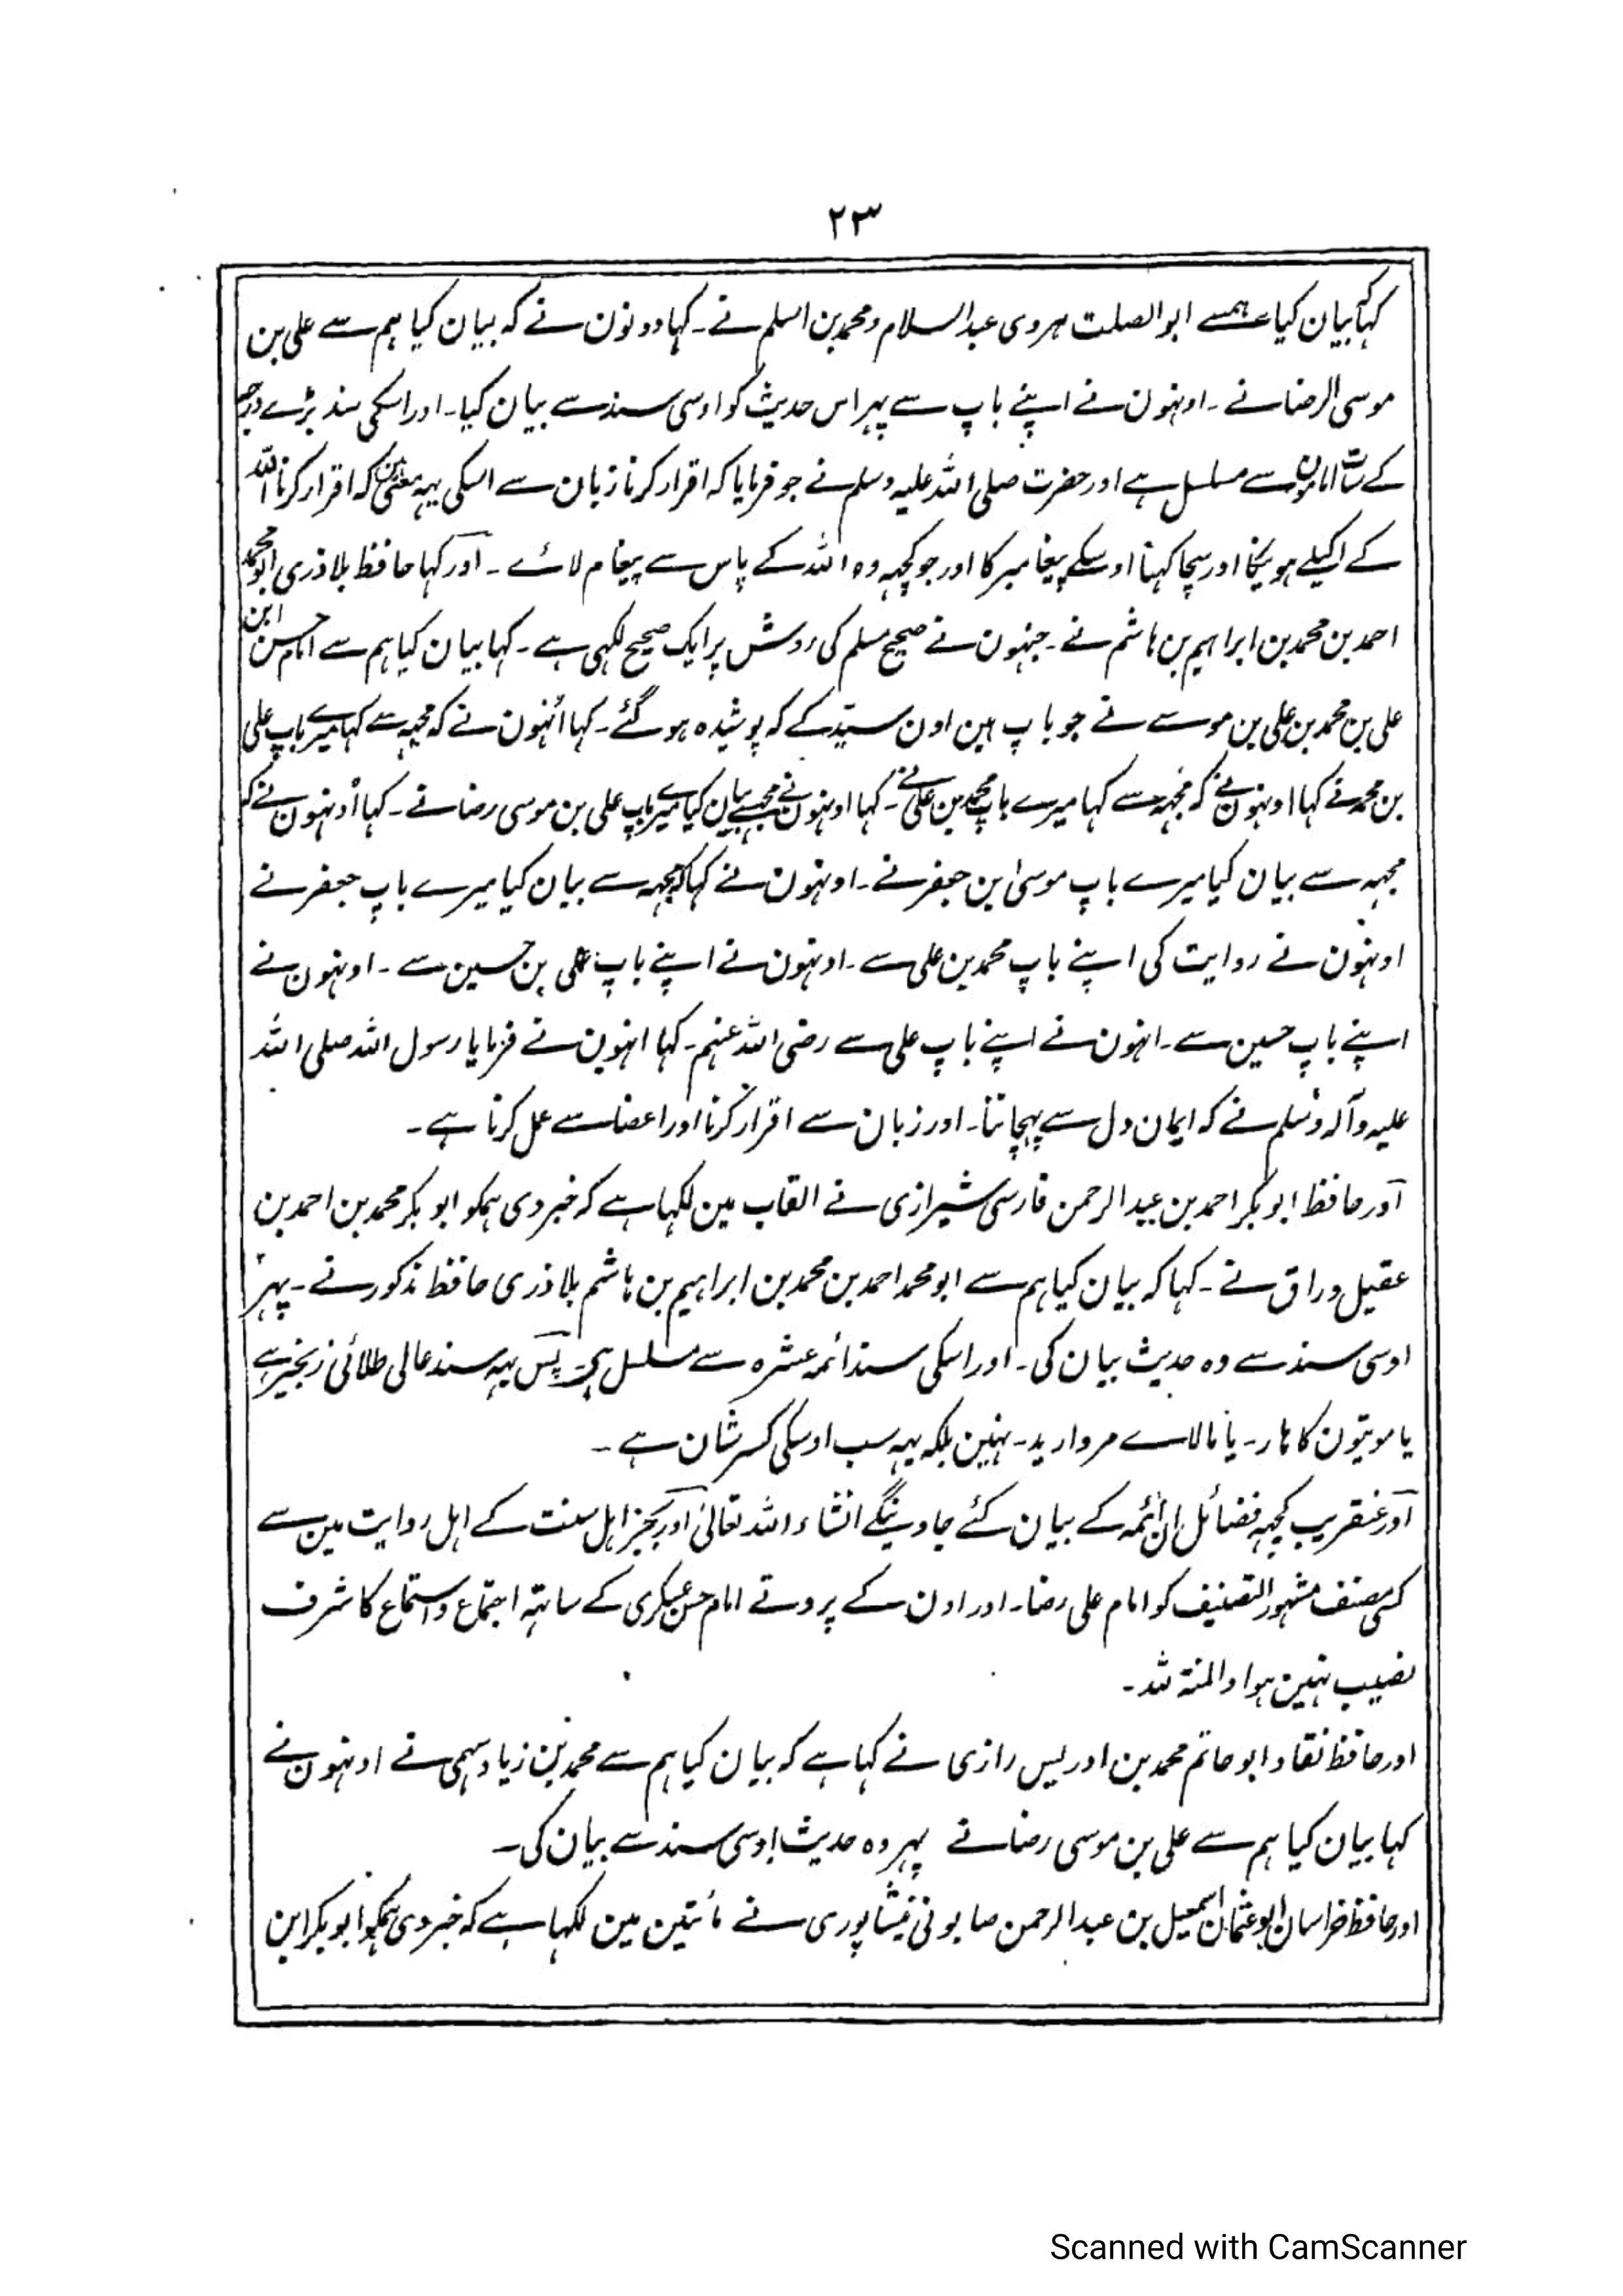 ۲۳
کہا بیان کیا ہمسے ابو الصلت ہروی عبد السلام و محمد بن اسلم نے۔ کہا دونون نے کہ بیان کیا ہم سے علی بن
موسی الرضا نے۔ اونہون نے اپنے باپ سے پہر اس حدیث کو اوسی سند سے بیان کیا۔ اور اسکی سند بڑے درجہ
کے سات امامون سے مسلسل ہے اور حضرت صلی اللہ علیہ وسلم نے جو فرمایا کہ اقرار کرنا زبان سے اسکی یہہ معنی ہین کہ اقرار کرنا اللہ
کے اکیلے ہونیکا اور سچا کہنا اوسکے پیغامبر کا اور جو کچہہ وہ اللہ کے پاس سے پیغام لائے۔ اور کہا حافظ بلاذری ابو محمد
احمد بن محمد بن ابراہیم بن ہاشم نے۔ جنہون نے صحیح مسلم کی روش پر ایک صحیح لکہی ہے۔ کہا بیان کیا ہم سے امام حسن ابن
علی بن محمد بن علی بن موسے نے جو باپ ہین اون سید کے کہ پوشیدہ ہو گئے۔ کہا اُنہون نے کہ مجہہ سے کہا میرے باپ علی
بن محمد نے کہا اونہون نے کہ مجہہ سے کہا میرے باپ محمد بن علی نے۔ کہا اونہون نے مجہسے بیان کیا میرے باپ علی بن موسی رضا نے۔ کہا اُونہون نے کہ
مجہہ سے بیان کیا میرے باپ موسیٰ ابن جعفر نے۔ اونہون نے کہا کہ مجہہ سے بیان کیا میرے باپ جعفر نے
اونہون نے روایت کی اپنے باپ محمد بن علی سے۔ اونہون نے اپنے باپ علی بن حسین سے۔ اونہون نے
اپنے باپ حسین سے۔ انہون نے اپنے باپ علی سے رضی اللہ عنہم۔ کہا انہون نے فرمایا رسول اللہ صلی اللہ
علیہ وآلہ وسلم نے کہ ایمان دل سے پہچاننا۔ اور زبان سے اقرار کرنا اور اعضا سے عمل کرنا ہے۔
اور حافظ ابو بکر احمد بن عبد الرحمن فارسی شیرازی نے القاب مین لکہا ہے کہ خبر دی ہمکو ابو بکر محمد بن احمد بن
عقیل وراق نے۔ کہا کہ بیان کیا ہم سے ابو محمد احمد بن محمد بن ابراہیم بن ہاشم بلاذری حافظ مذکور نے۔ پہر
اوسی سند سے وہ حدیث بیان کی۔ اور اسکی سند ائمہ عشرہ سے مسلسل ہی۔ پس یہہ سند عالی طلائی زنجیر ہے
یا موتیون کا ہار۔ یا مالاے مروارید۔ نہین بلکہ یہہ سب اوسکی کسر شان ہے۔
اور عنقریب کچہہ فضائل ان ائمہ کے بیان کئے جاوینگے انشاء اللہ تعالیٰ اور بجز اہل سنت کے اہل روایت مین سے
کسی مصنف مشہور التصنیف کو امام علی رضا۔ اور اون کے پروتے امام حسن عسکری کے ساتہہ اجتماع واستماع کا شرف
نصیب نہین ہوا والمنۃ للہ۔
اور حافظ نقاد ابو حاتم محمد بن ادریس رازی نے کہا ہے کہ بیان کیا ہم سے محمد بن زیاد سہمی نے اونہون نے
کہا بیان کیا ہم سے علی بن موسی رضا نے پہر وہ حدیث اوسی سند سے بیان کی۔
اور حافظ خراسان ابو عثمان اسمعیل بن عبد الرحمن صابونی نیشاپوری نے مائتین مین لکہا ہے کہ خبر دی ہمکو ابو بکر ابن
Scanned with CamScanner